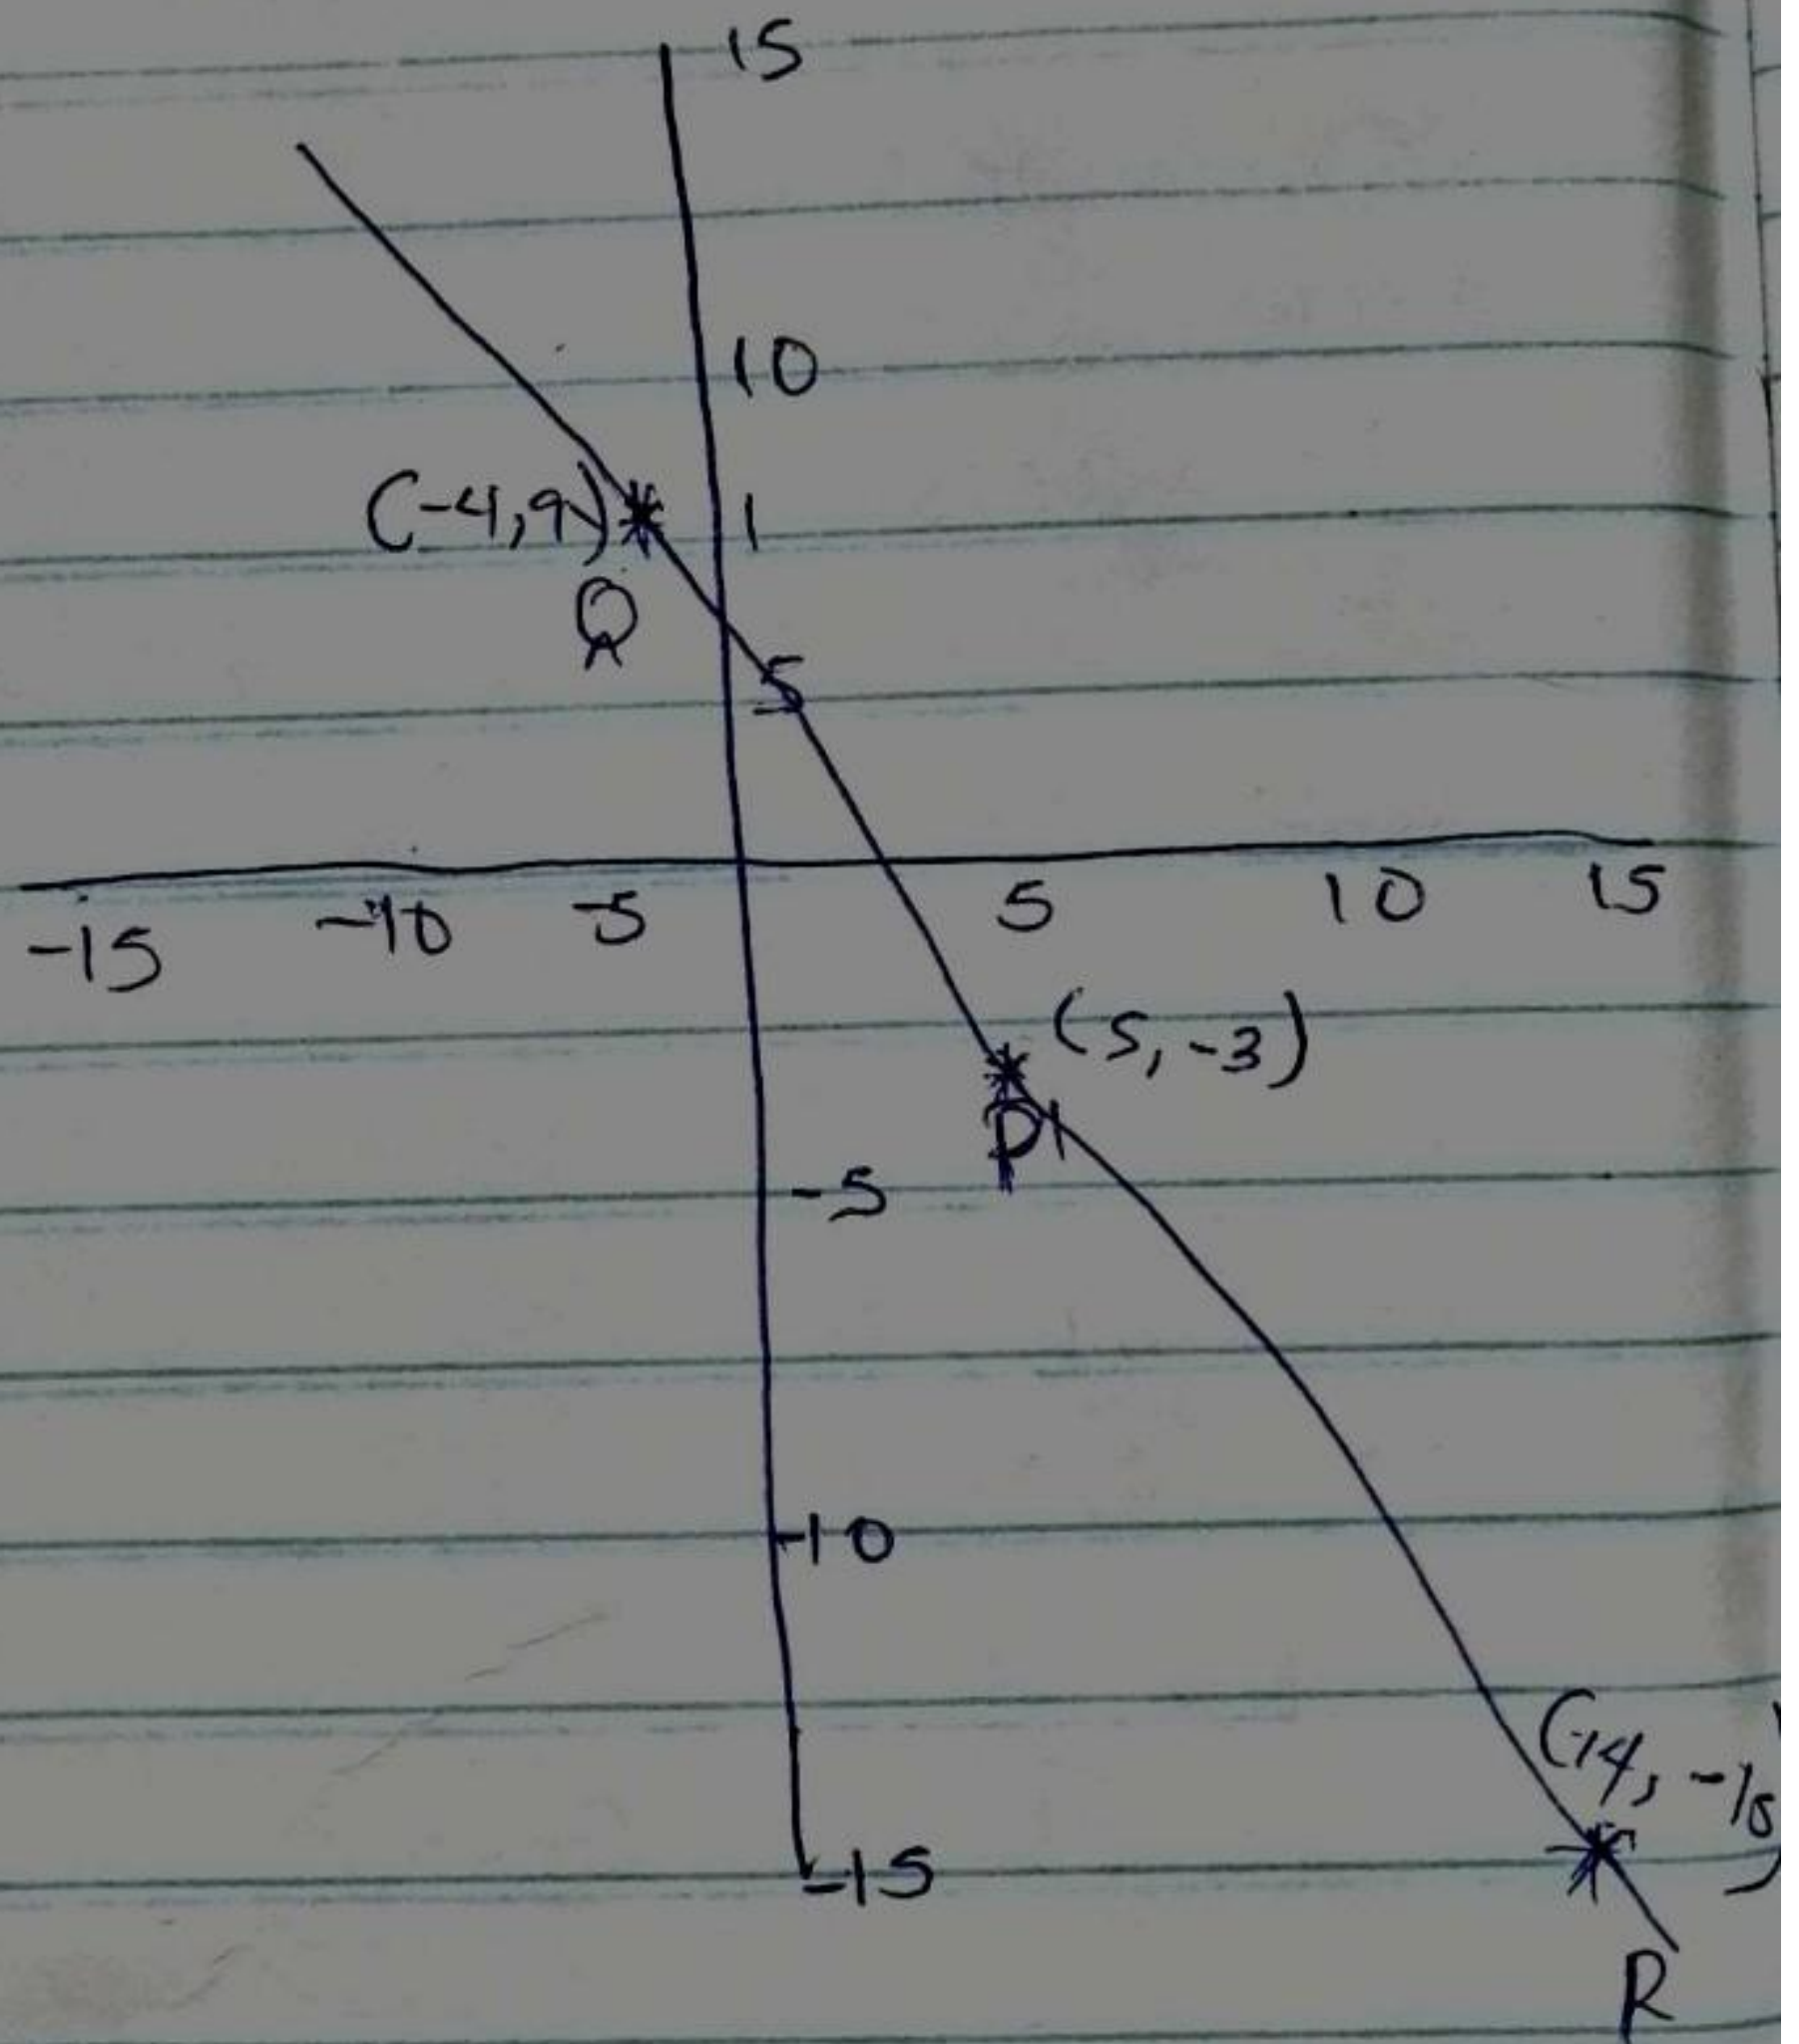 15
10
(-4,9)
1
Q
5
-15 -10 -5 5 10 15
(5,-3)
P
-5
-10
-15
R